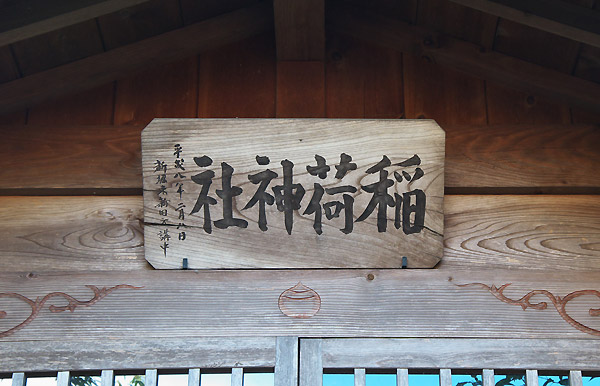 稲荷神社
平成八年二月八日
新堀東新田 講中